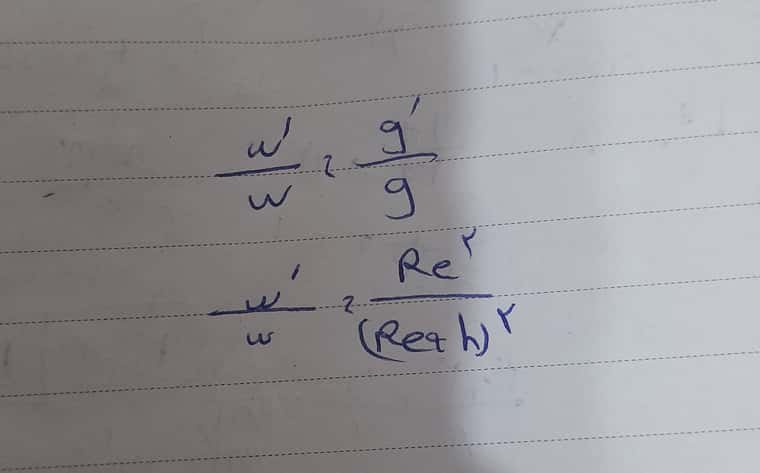 w'/w = g'/g
w'/w = Re²/(Re+h)²